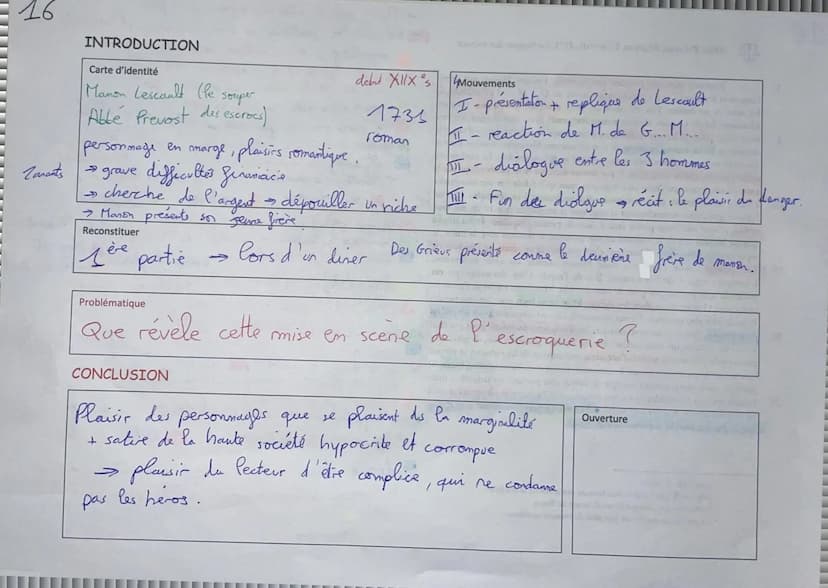 16
INTRODUCTION
Carte d'identité
debut XIIX°s
Manon Lescault (le souper
des escrocs)
Abbé Prevost
1731
roman
personnage en marge, plaisirs romantique.
2 amants
→ grave difficultés financière
→ cherche de l'argent → dépouiller un riche
→ Manon présente son jeune frère
4 Mouvements
I - présentation + replique de Lescault
II - reaction de M. de G...M...
III - dialogue entre les 3 hommes
IIII - Fin du diologue → récit : le plaisir du danger.
Reconstituer
1ère partie → lors d'un diner Des Grieux présenté comme le deuxième frère de manon.
Problématique
Que révèle cette mise en scène de l'escroquerie ?
CONCLUSION
Plaisir des personnages que se plaisent ds la marginalité
+ satire de la haute société hypocrite et corrompue
→ plaisir du lecteur d'être complice, qui ne condamne
pas les héros.
Ouverture